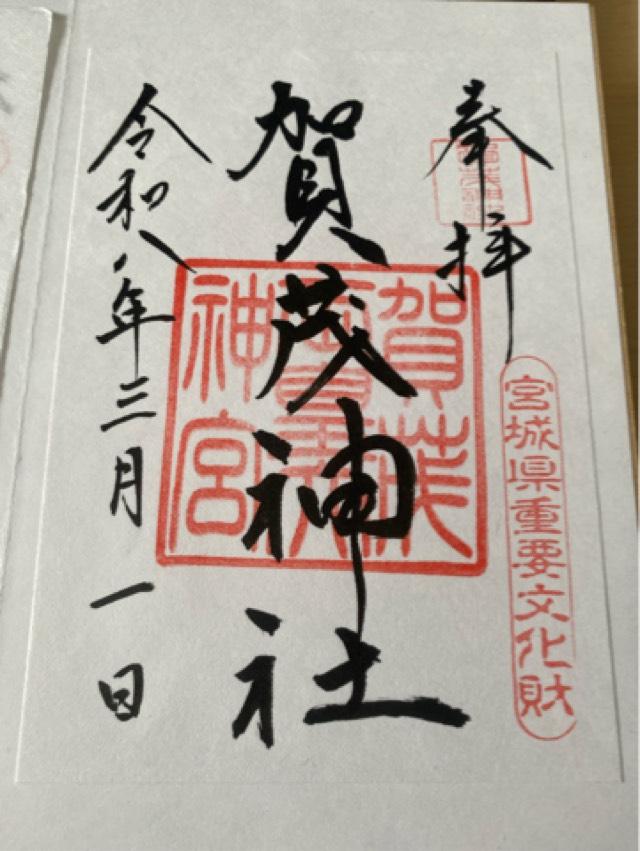 奉拝
宮城県重要文化財
賀茂神社
令和八年三月一日